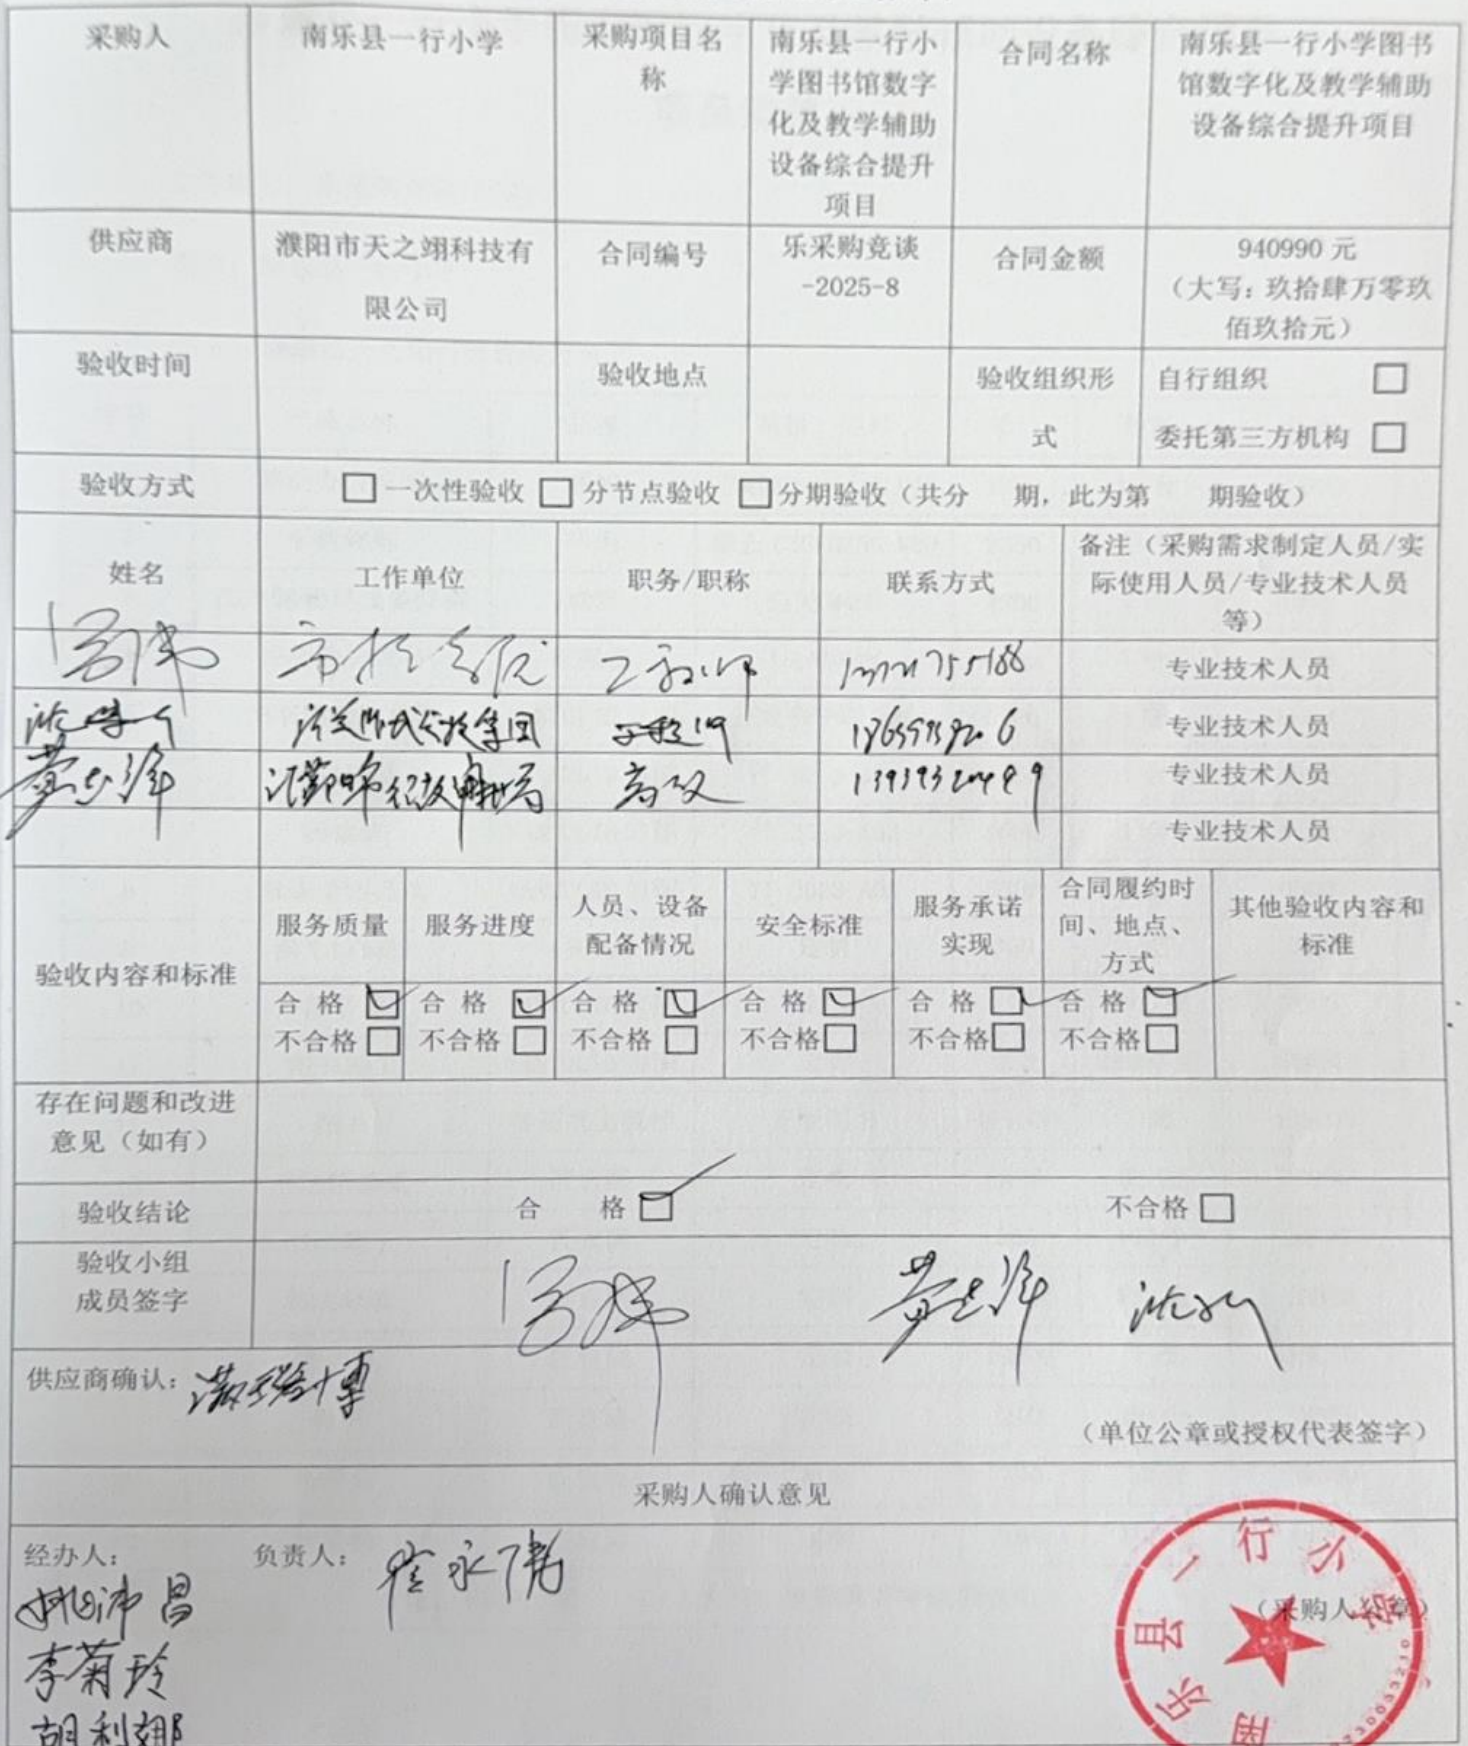 采购人
南乐县一行小学
采购项目名
称
南乐县一行小
学图书馆数字
化及教学辅助
设备综合提升
项目
合同名称
南乐县一行小学图书
馆数字化及教学辅助
设备综合提升项目
供应商
濮阳市天之翊科技有
限公司
合同编号
乐采购竞谈
-2025-8
合同金额
940990 元
（大写：玖拾肆万零玖
佰玖拾元）
验收时间
验收地点
验收组织形
式
自行组织
委托第三方机构
验收方式
一次性验收 分节点验收 分期验收（共分 期，此为第 期验收）
姓名
工作单位
职务/职称
联系方式
备注（采购需求制定人员/实
际使用人员/专业技术人员
等）
工程师
专业技术人员
工程师
专业技术人员
专业技术人员
专业技术人员
验收内容和标准
服务质量
服务进度
人员、设备
配备情况
安全标准
服务承诺
实现
合同履约时
间、地点、
方式
其他验收内容和
标准
合 格
合 格
合 格
合 格
合 格
合 格
不合格
不合格
不合格
不合格
不合格
不合格
存在问题和改进
意见（如有）
验收结论
合 格
不合格
验收小组
成员签字
供应商确认：
（单位公章或授权代表签字）
采购人确认意见
经办人：
负责人：
李菊玲
胡利娜
（采购人公章）
南乐县一行小学